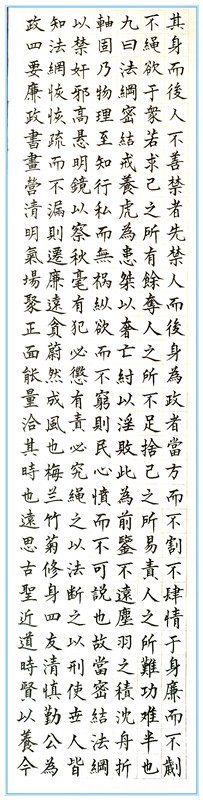 其身而後人不善禁者先禁人而後身為政者當方而不割不肆情于身廉而不劌
不繩欲于衆若求己之所有餘奪人之所不足捨己之所易責人之所難功唯半也
九曰法綱密結戒養虎為患桀以奢亡紂以淫敗此為前鑒不遠塵羽之積沈舟折
軸固乃物理至知行私而無禍纵欲而不窮則民心憤而不可説也故當密結法綱
以禁奸邪高悬明鏡以察秋毫有犯必懲有責必究繩之以法断之以刑使世人皆
知法網恢恢疏而不漏則遷廉遠貪蔚然成風也梅兰竹菊修身四友清慎勤公為
政四要廉政書畫營清明氣場聚正面能量洽其時也遠思古聖近道時賢以養今